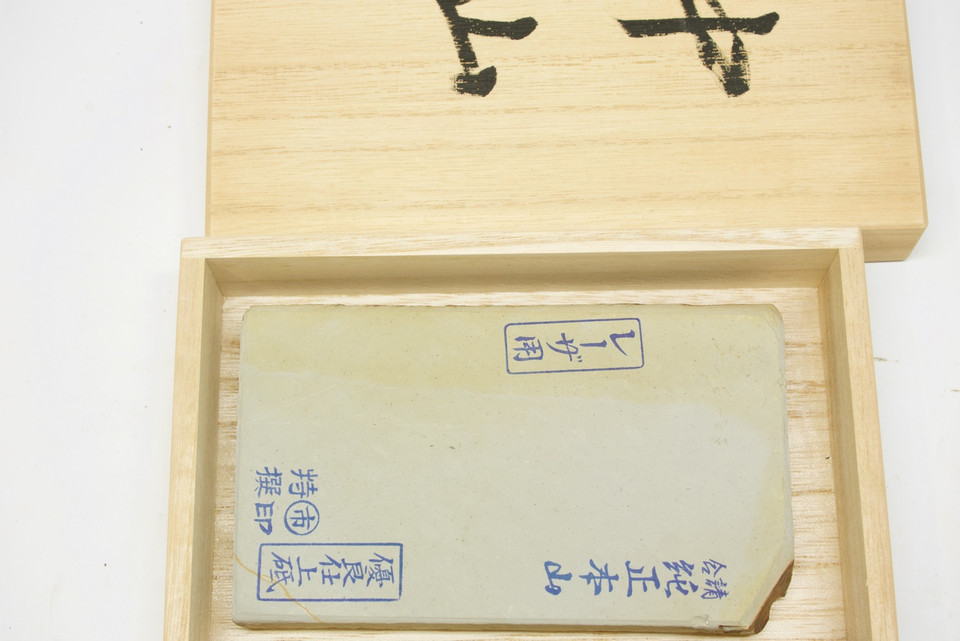 レーザ用
請合
純正本山
市印
特撰
優良仕上砥